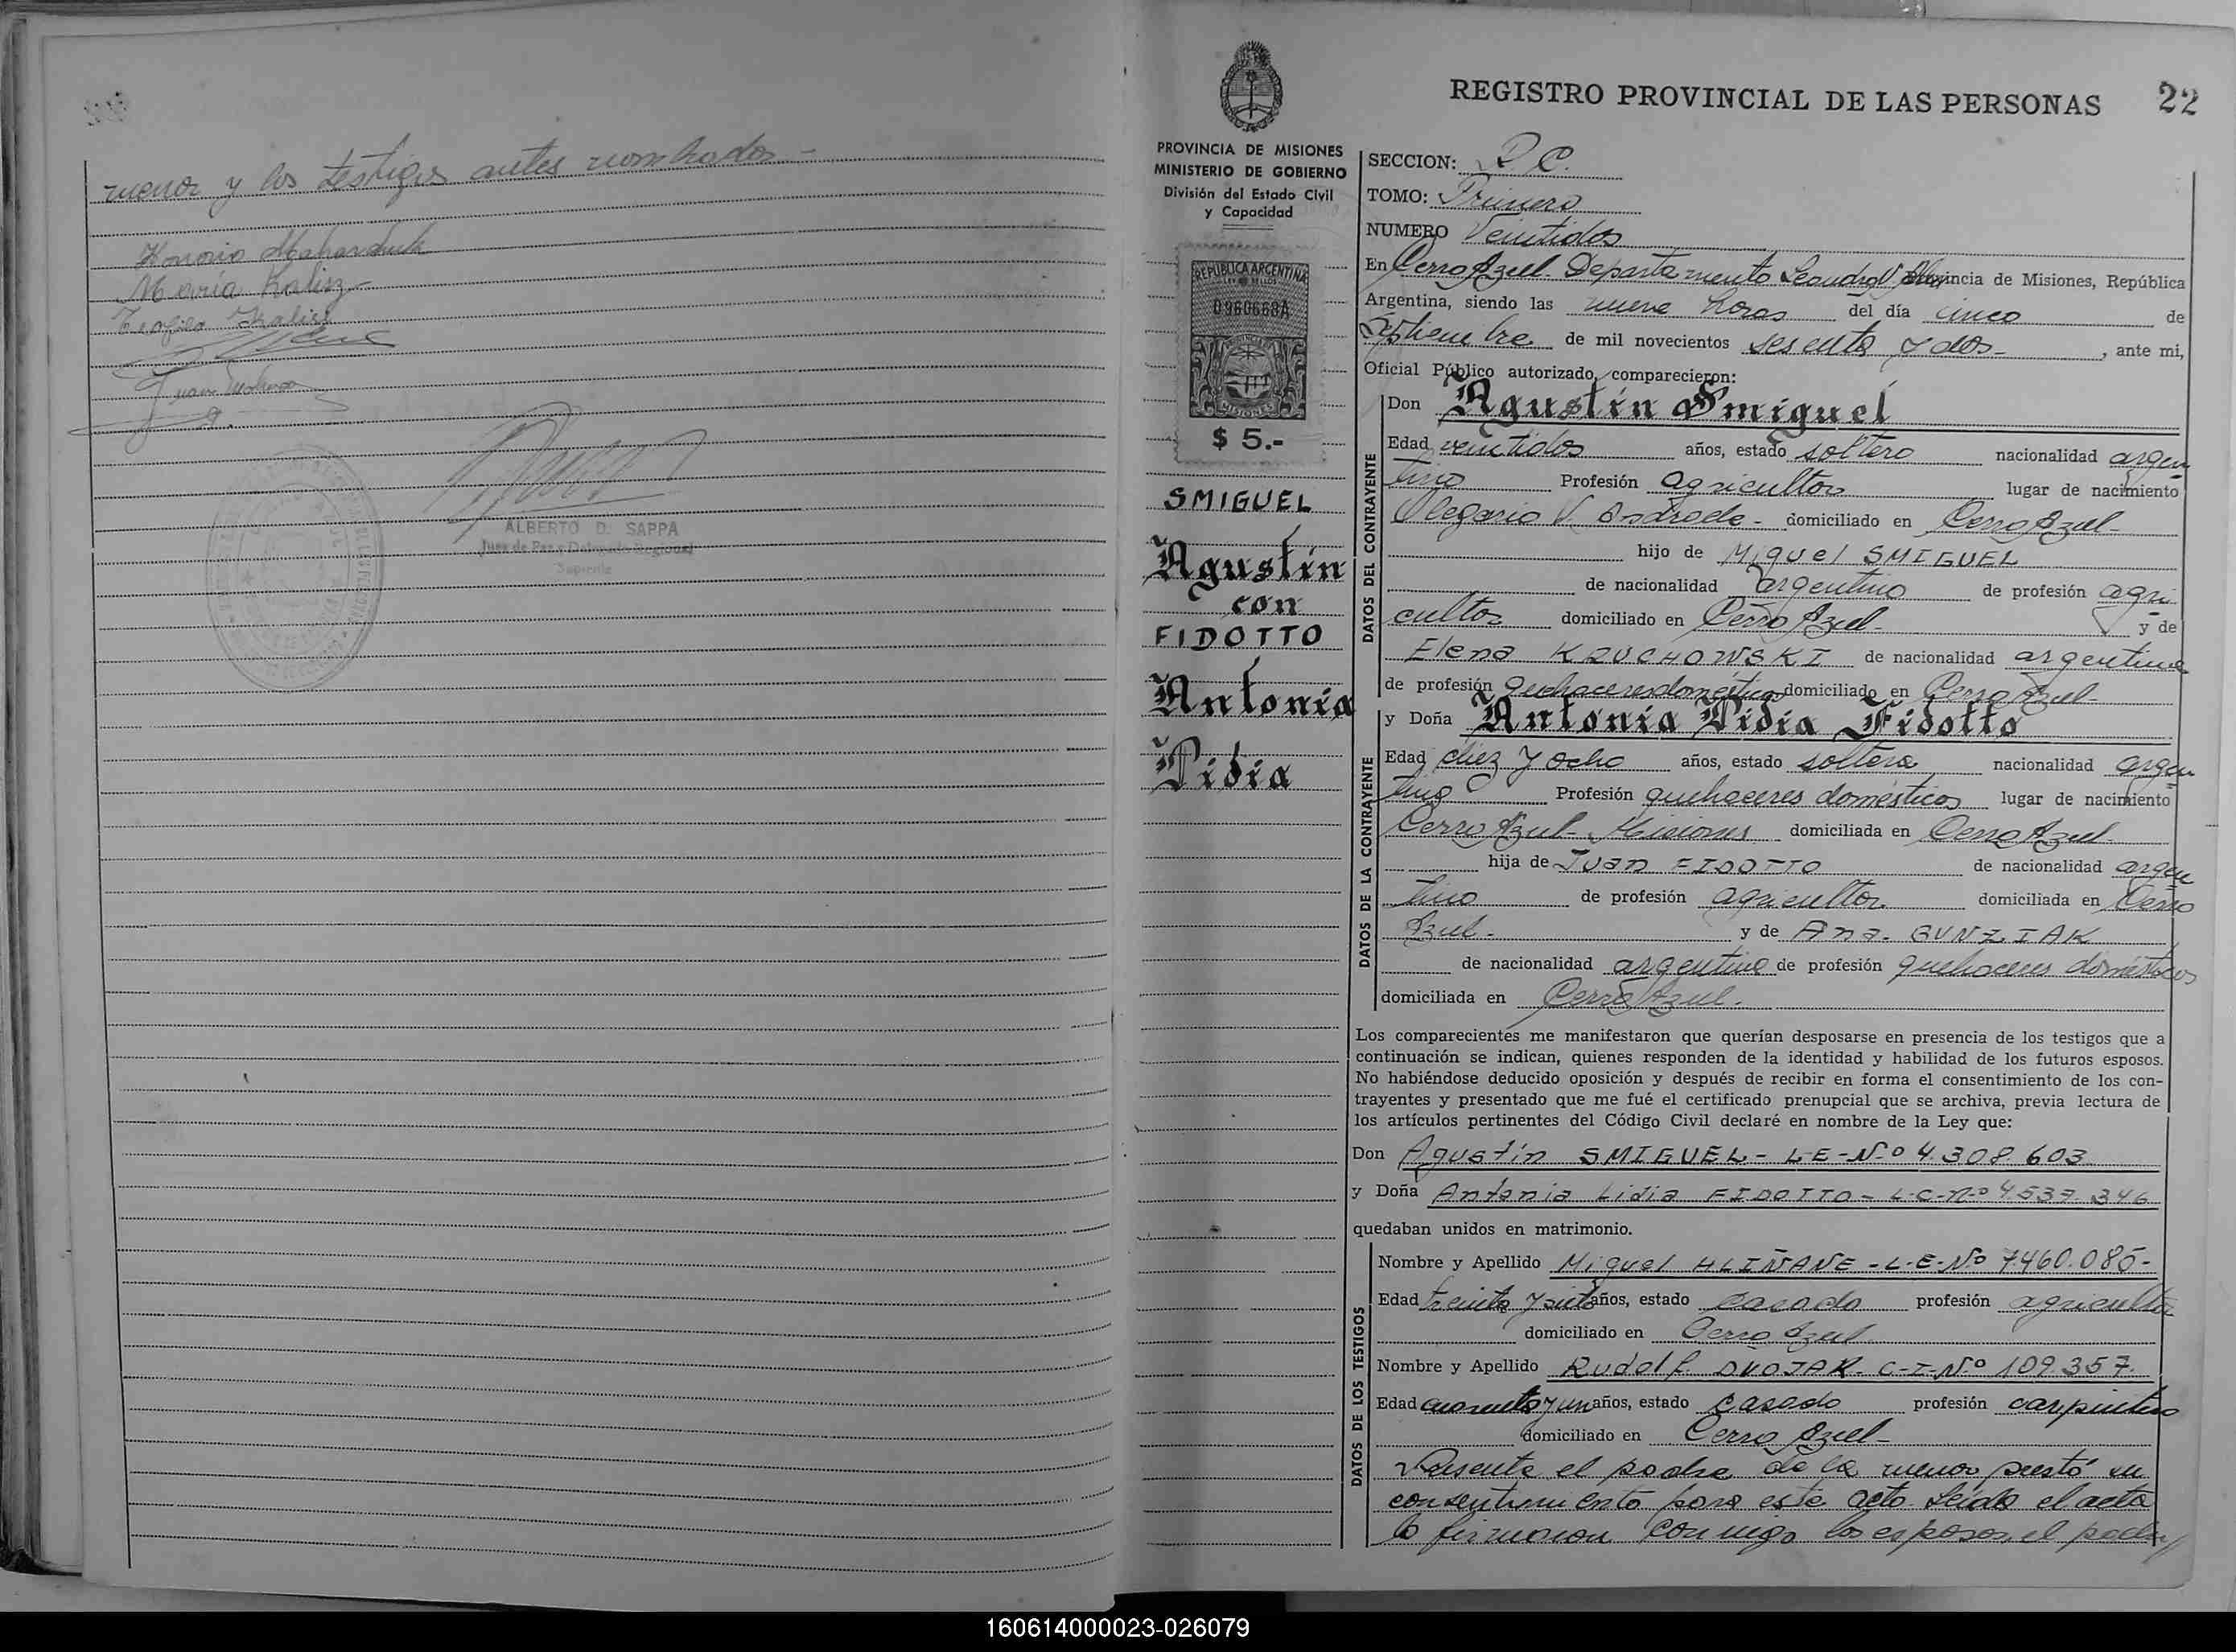 menor y los testigos antes nombrados-
María Kalisz
ALBERTO D. SAPPA
Juez de Paz y Delegado Regional
Suplente
REGISTRO PROVINCIAL DE LAS PERSONAS 22
PROVINCIA DE MISIONES
MINISTERIO DE GOBIERNO
División del Estado Civil
y Capacidad
REPUBLICA ARGENTINA
LEY DE SELLOS
0960668A
PROVINCIA DE
MISIONES
$ 5.-
SMIGUEL
Agustín
con
FIDOTTO
Antonia
Lidia
SECCION: R C.
TOMO: Primero
NUMERO Veintidos
En Cerro Azul- Departamento Leandro N. Alem Provincia de Misiones, República
Argentina, siendo las nueve horas del día cinco de
septiembre de mil novecientos sesenta y dos- , ante mi,
Oficial Público autorizado, comparecieron:
DATOS DEL CONTRAYENTE
Don Agustín Smiguel
Edad veintidos años, estado soltero nacionalidad argen
tino Profesión agricultor lugar de nacimiento
Olegario V. Andrade- domiciliado en Cerro Azul-
hijo de Miguel SMIGUEL
de nacionalidad argentino de profesión agri
cultor domiciliado en Cerro Azul- y de
Elena KRUCHOWSKI de nacionalidad argentina
de profesión quehaceres domésticos domiciliado en Cerro Azul-
DATOS DE LA CONTRAYENTE
y Doña Antonia Lidia Fidotto
Edad diez y ocho años, estado soltera nacionalidad argen
tina Profesión quehaceres domésticos lugar de nacimiento
Cerro Azul- Misiones domiciliada en Cerro Azul-
hija de Juan FIDOTTO de nacionalidad argen
tino de profesión agricultor domiciliada en Cerro
Azul- y de Ana- GUNZIAK
de nacionalidad argentina de profesión quehaceres domésticos
domiciliada en Cerro Azul.
Los comparecientes me manifestaron que querían desposarse en presencia de los testigos que a
continuación se indican, quienes responden de la identidad y habilidad de los futuros esposos.
No habiéndose deducido oposición y después de recibir en forma el consentimiento de los con-
trayentes y presentado que me fué el certificado prenupcial que se archiva, previa lectura de
los artículos pertinentes del Código Civil declaré en nombre de la Ley que:
Don Agustín SMIGUEL- L-E-Nº 4.308.603
y Doña Antonia Lidia FIDOTTO- L-C-Nº 4.537.346
quedaban unidos en matrimonio.
DATOS DE LOS TESTIGOS
Nombre y Apellido Miguel HLIÑANE-L-E-Nº 7.460.085-
Edad treinta y siete años, estado casado profesión agricultor
domiciliado en Cerro Azul
Nombre y Apellido Rudolf DVOJAK- C-I-Nº 109.357.
Edad cuarenta y un años, estado casado profesión carpintero
domiciliado en Cerro Azul-
Presente el padre de la menor prestó su
consentimiento para este acto. Leída el acta
la firmaron conmigo los esposos, el padre
160614000023-026079